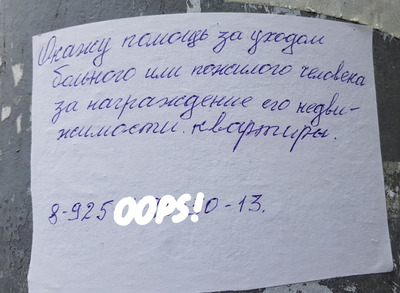 Окажу помощь за уходом
больного или пожилого человека
за награждение его недви-
жимости. квартиры.
8-925 OOPS! 0-13.